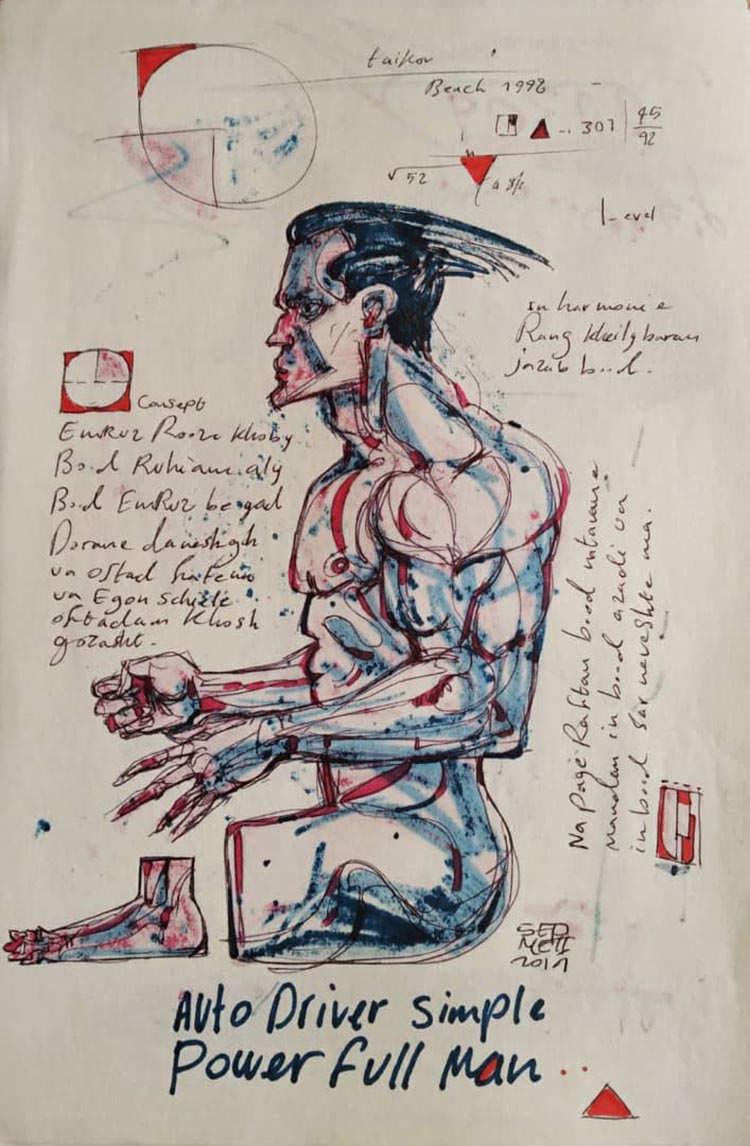 Beach 1998
307 | 45
92
√52
in harmonie
Rang kheily baram
jazab bood.
Consept
EmRuz Rooze khoby
Bood Ruhiam aly
Bood EmRuz be yad
Dorane daneshgah
va Ostad
va Egon schiele
oftadam Khosh
gozasht.
Na Page Raftan bood na
mandan in bood azadi va
in bood sar neveshte ma.
2011
Auto Driver simple
Powerfull Man..